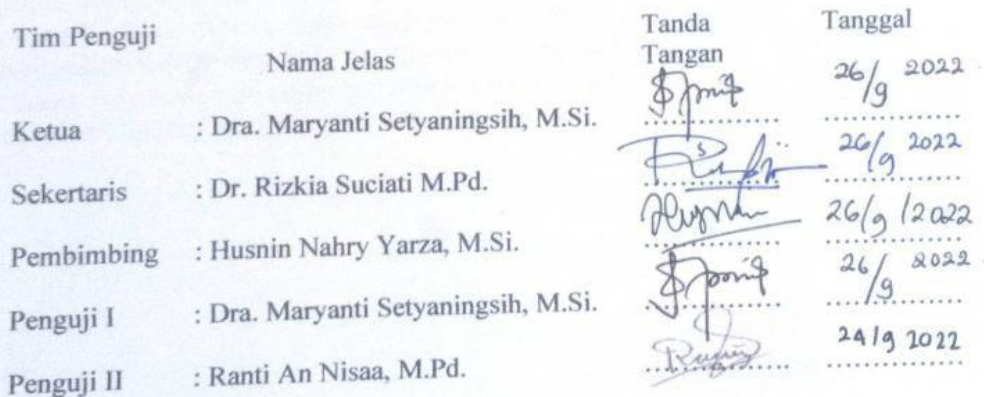 Tim Penguji
Nama Jelas
Tanda Tangan
Tanggal
Ketua : Dra. Maryanti Setyaningsih, M.Si. 26/9 2022
Sekertaris : Dr. Rizkia Suciati M.Pd. 26/9 2022
Pembimbing : Husnin Nahry Yarza, M.Si. 26/9/2022
Penguji I : Dra. Maryanti Setyaningsih, M.Si. 26/9 2022
Penguji II : Ranti An Nisaa, M.Pd. 24/9 2022